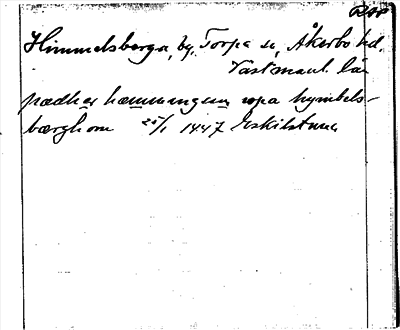 Himmelsberga, by, Torpa sn, Åkerbo hd.
Västmanl. län
padhar hæmmingxm upa hymbels-
bærghom 25/1 1447 Eskilstuna